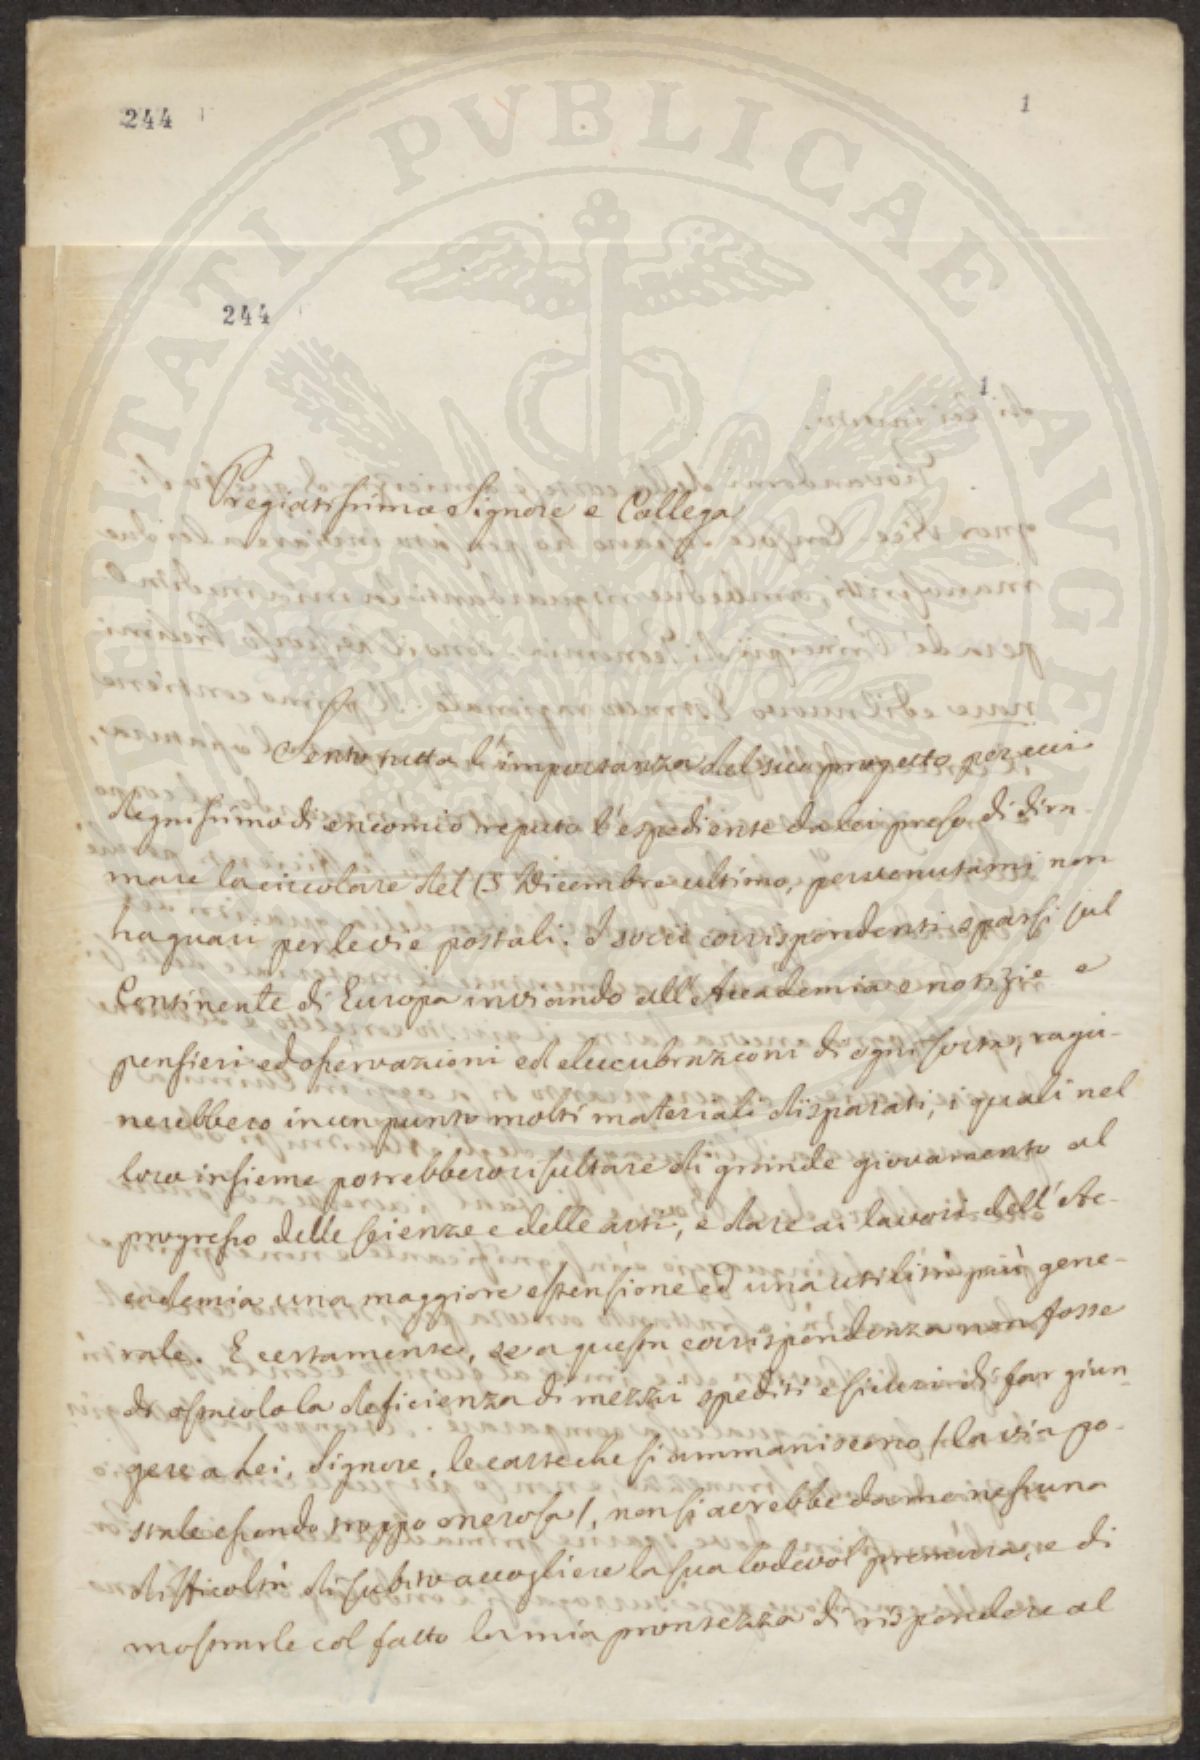 244
1
244
1
Pregiatissimo Signore e Collega
Sento tutta l'importanza del suo progetto, per cui
degnissimo di encomio reputo l'espediente da Lei preso di dira-
mare la circolare del 15 Dicembre ultimo, pervenutami non
ha guari per le vie postali. I socii corrispondenti sparsi sul
Continente di Europa inviando all'Accademia e notizie e
pensieri ed osservazioni ed elucubrazioni di ogni sorta, ragu-
nerebbero in un punto molti materiali disparati, i quali nel
loro insieme potrebbero risultare di grande giovamento al
progresso delle scienze e delle arti, e dare ai lavori dell'Ac-
cademia una maggiore estensione ed una utilità più gene-
rale. E certamente, se a questa corrispondenza non fosse
di ostacolo la deficienza di mezzi spediti e sicuri di far giun-
gere a Lei, Signore, le carte che si ammaniscono /la via po-
stale essendo troppo onerosa/, non si avrebbe da me nessuna
difficoltà di subito accogliere la sua lodevol premura, e di
mostrarle col fatto la mia prontezza di rispondere al
PERITATI PVBLICAE AVGE